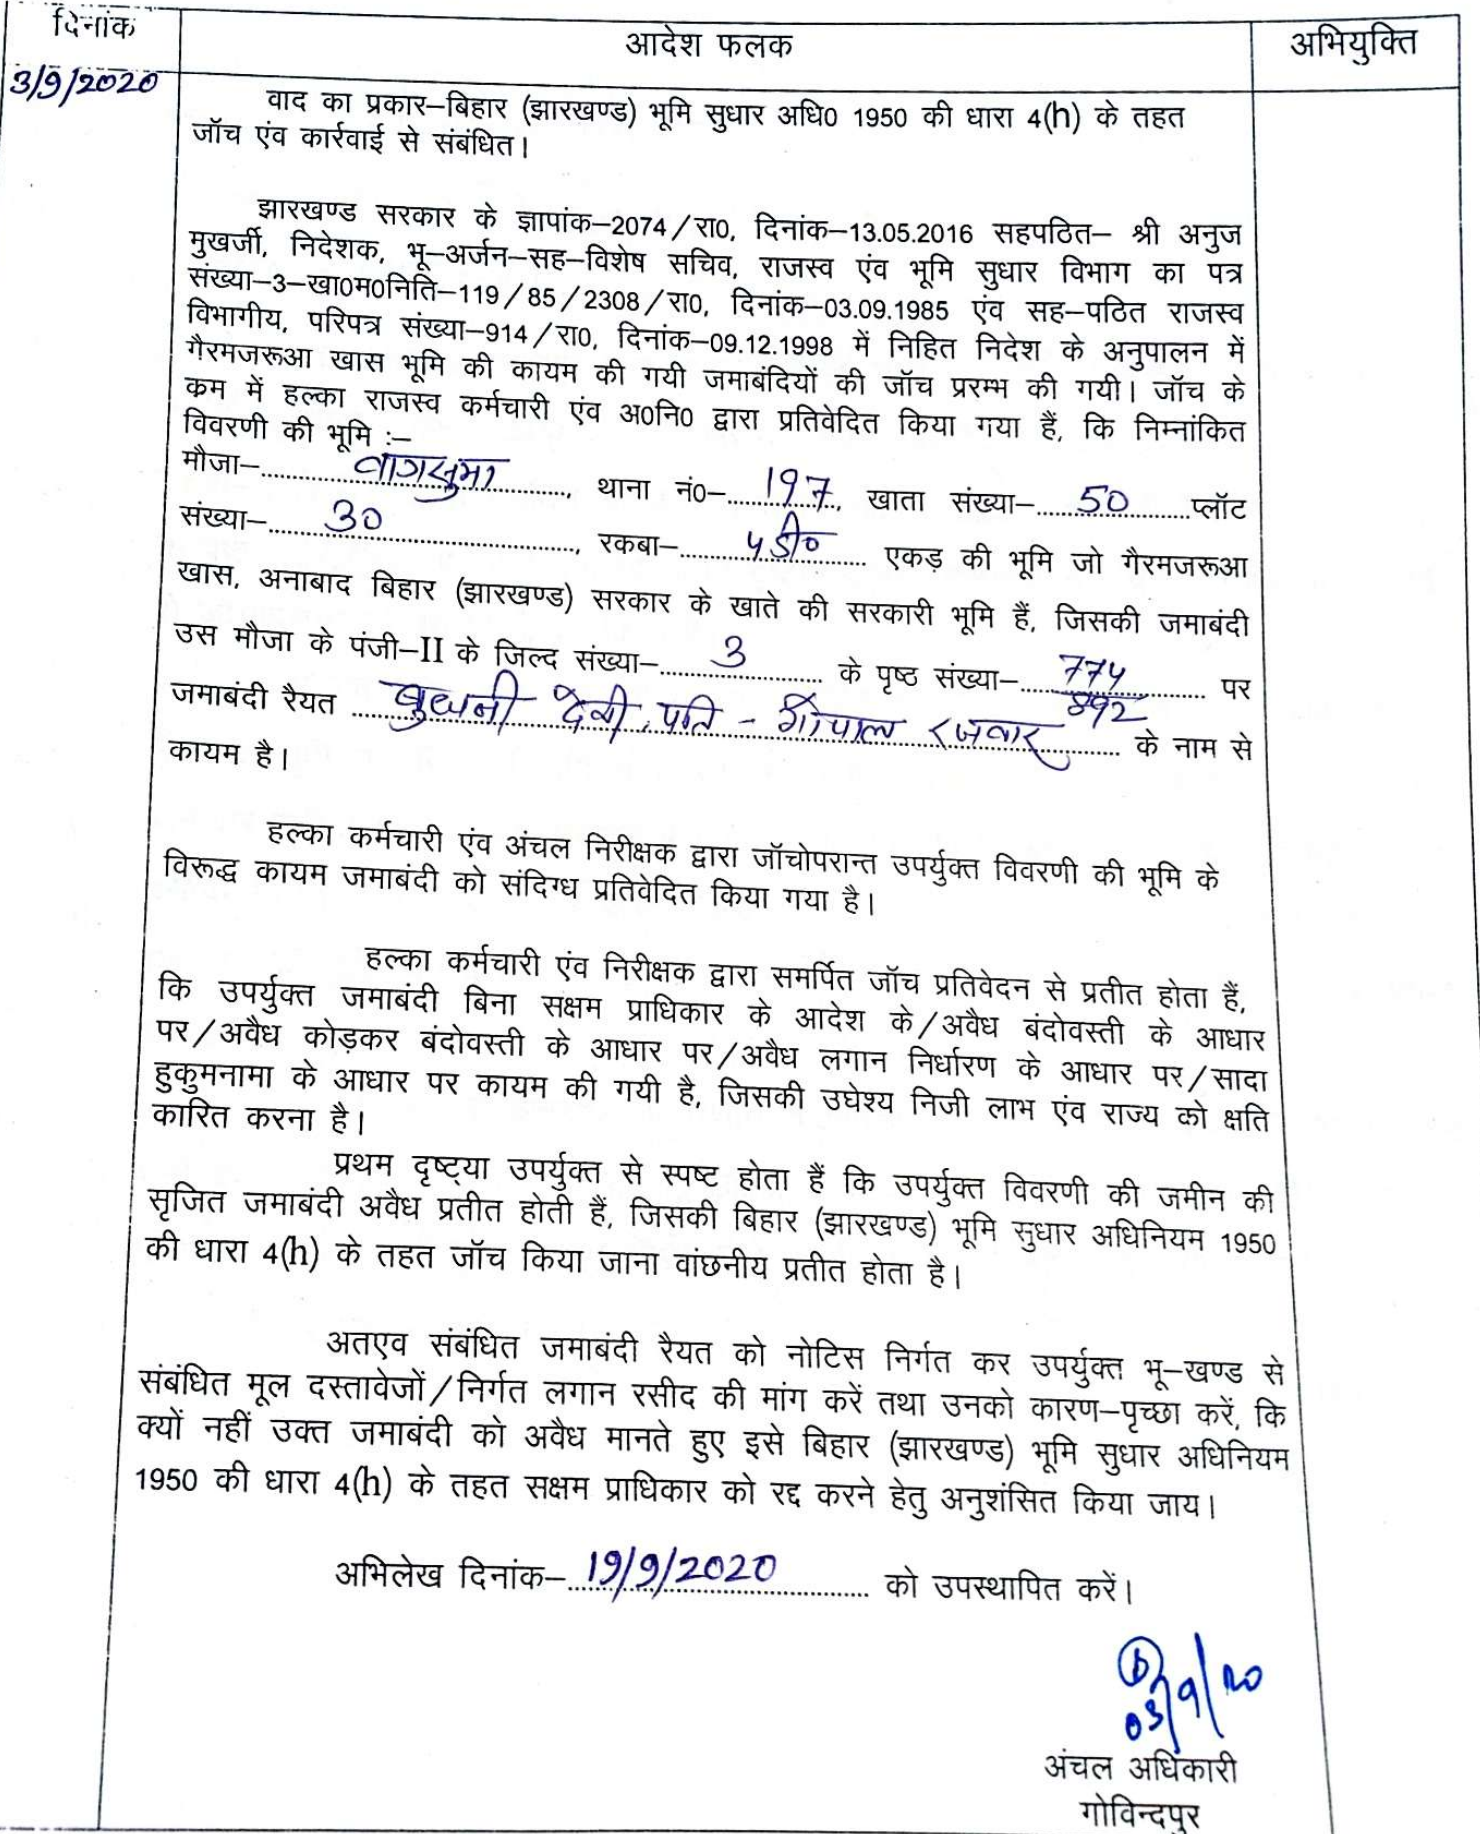 दिनांक
आदेश फलक
अभियुक्ति
3/9/2020
वाद का प्रकार–बिहार (झारखण्ड) भूमि सुधार अधि0 1950 की धारा 4(h) के तहत
जॉच एंव कार्रवाई से संबंधित।
झारखण्ड सरकार के ज्ञापांक–2074/रा0, दिनांक–13.05.2016 सहपठित– श्री अनुज
मुखर्जी, निदेशक, भू–अर्जन–सह–विशेष सचिव, राजस्व एंव भूमि सुधार विभाग का पत्र
संख्या–3–खा0म0निति–119/85/2308/रा0, दिनांक–03.09.1985 एंव सह–पठित राजस्व
विभागीय, परिपत्र संख्या–914/रा0, दिनांक–09.12.1998 में निहित निदेश के अनुपालन में
गैरमजरूआ खास भूमि की कायम की गयी जमाबंदियों की जॉच प्ररम्भ की गयी। जॉच के
क्रम में हल्का राजस्व कर्मचारी एंव अ0नि0 द्वारा प्रतिवेदित किया गया हैं, कि निम्नांकित
विवरणी की भूमि :–
मौजा–..........वागसुमा.........., थाना नं0–....197...., खाता संख्या–....50....प्लॉट
संख्या–....30...................., रकबा–....५ डी०.... एकड़ की भूमि जो गैरमजरूआ
खास, अनाबाद बिहार (झारखण्ड) सरकार के खाते की सरकारी भूमि हैं, जिसकी जमाबंदी
उस मौजा के पंजी–II के जिल्द संख्या–....3.... के पृष्ठ संख्या–....774/892.... पर
जमाबंदी रैयत ....बुधनी देवी, पति - गोपाल रजवार.... के नाम से
कायम है।
हल्का कर्मचारी एंव अंचल निरीक्षक द्वारा जॉचोपरान्त उपर्युक्त विवरणी की भूमि के
विरूद्ध कायम जमाबंदी को संदिग्ध प्रतिवेदित किया गया है।
हल्का कर्मचारी एंव निरीक्षक द्वारा समर्पित जॉच प्रतिवेदन से प्रतीत होता हैं,
कि उपर्युक्त जमाबंदी बिना सक्षम प्राधिकार के आदेश के/अवैध बंदोवस्ती के आधार
पर/अवैध कोड़कर बंदोवस्ती के आधार पर/अवैध लगान निर्धारण के आधार पर/सादा
हुकुमनामा के आधार पर कायम की गयी है, जिसकी उघेश्य निजी लाभ एंव राज्य को क्षति
कारित करना है।
प्रथम दृष्ट्या उपर्युक्त से स्पष्ट होता हैं कि उपर्युक्त विवरणी की जमीन की
सृजित जमाबंदी अवैध प्रतीत होती हैं, जिसकी बिहार (झारखण्ड) भूमि सुधार अधिनियम 1950
की धारा 4(h) के तहत जॉच किया जाना वांछनीय प्रतीत होता है।
अतएव संबंधित जमाबंदी रैयत को नोटिस निर्गत कर उपर्युक्त भू–खण्ड से
संबंधित मूल दस्तावेजों/निर्गत लगान रसीद की मांग करें तथा उनको कारण–पृच्छा करें, कि
क्यों नहीं उक्त जमाबंदी को अवैध मानते हुए इसे बिहार (झारखण्ड) भूमि सुधार अधिनियम
1950 की धारा 4(h) के तहत सक्षम प्राधिकार को रद्द करने हेतु अनुशंसित किया जाय।
अभिलेख दिनांक–....19/9/2020.... को उपस्थापित करें।
03/9/20
अंचल अधिकारी
गोविन्दपुर